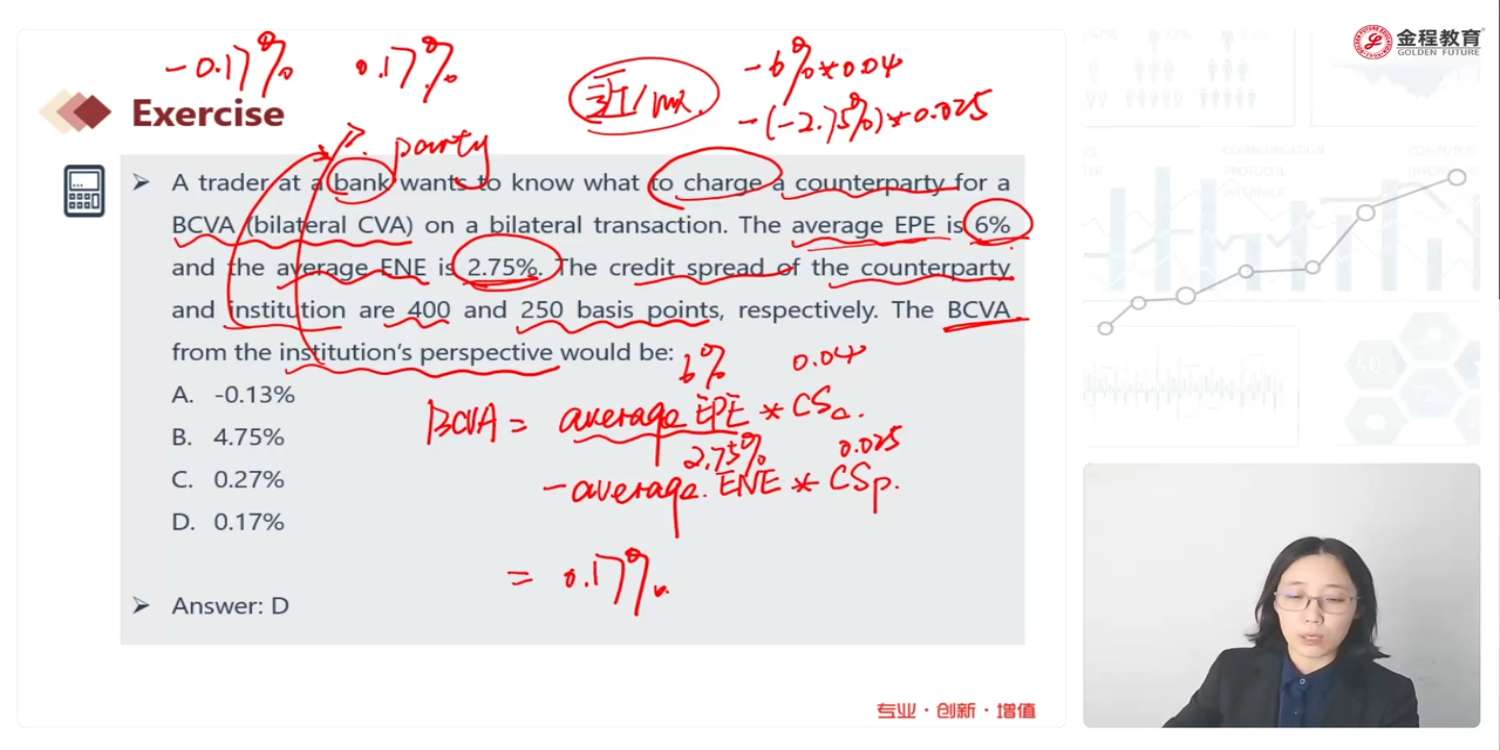 -0.17% 0.17%
-6%*0.04
-(-2.75%)*0.025
金程教育
GOLDEN FUTURE
Exercise
P. party
A trader at a bank wants to know what to charge a counterparty for a
BCVA (bilateral CVA) on a bilateral transaction. The average EPE is 6%
and the average ENE is 2.75%. The credit spread of the counterparty
and institution are 400 and 250 basis points, respectively. The BCVA
from the institution's perspective would be:
6% 0.04
A. -0.13%
BCVA = average EPE * CSc.
B. 4.75%
2.75% 0.025
- average. ENE * CSp.
C. 0.27%
D. 0.17%
= 0.17%
Answer: D
专业·创新·增值